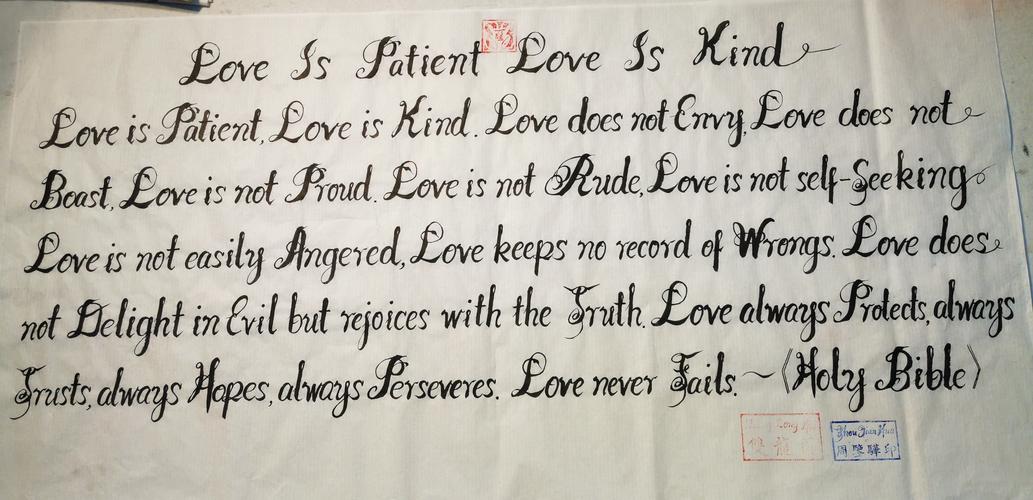 Love Is Patient Love Is Kind
Love is Patient, Love is Kind. Love does not Envy, Love does not
Boast, Love is not Proud. Love is not Rude, Love is not self-Seeking
Love is not easily Angered, Love keeps no record of Wrongs. Love does
not Delight in Evil but rejoices with the Truth. Love always Protects, always
Trusts, always Hopes, always Perseveres. Love never Fails. ~《Holy Bible》
Zhou Jian Hua
雙龍
周鑒驊印